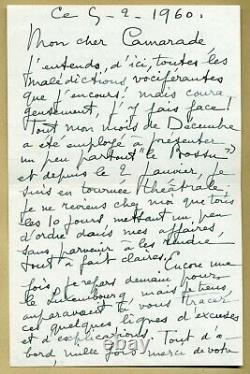 Ce 5-2-1960.
Mon cher Camarade,
J'entends, d'ici, toutes les
malédictions vociférantes
que j'encours! mais coura
geusement, j'y fais face!
Tout mon mois de Décembre
a été employé à présenter
un peu partout "le Bossu"
et depuis le 2 Janvier, je
suis en tournée théâtrale,
je ne reviens chez moi que tous
les 10 jours mettant un peu
d'ordre dans mes affaires,
sans parvenir à les rendre
tout à fait claires. Encore une
fois, je repars demain pour
le Luxembourg, mais je tiens,
auparavant à vous tracer
ces quelques lignes d'excuses
et d'explications. Tout d'a
bord, mille fois merci de votre